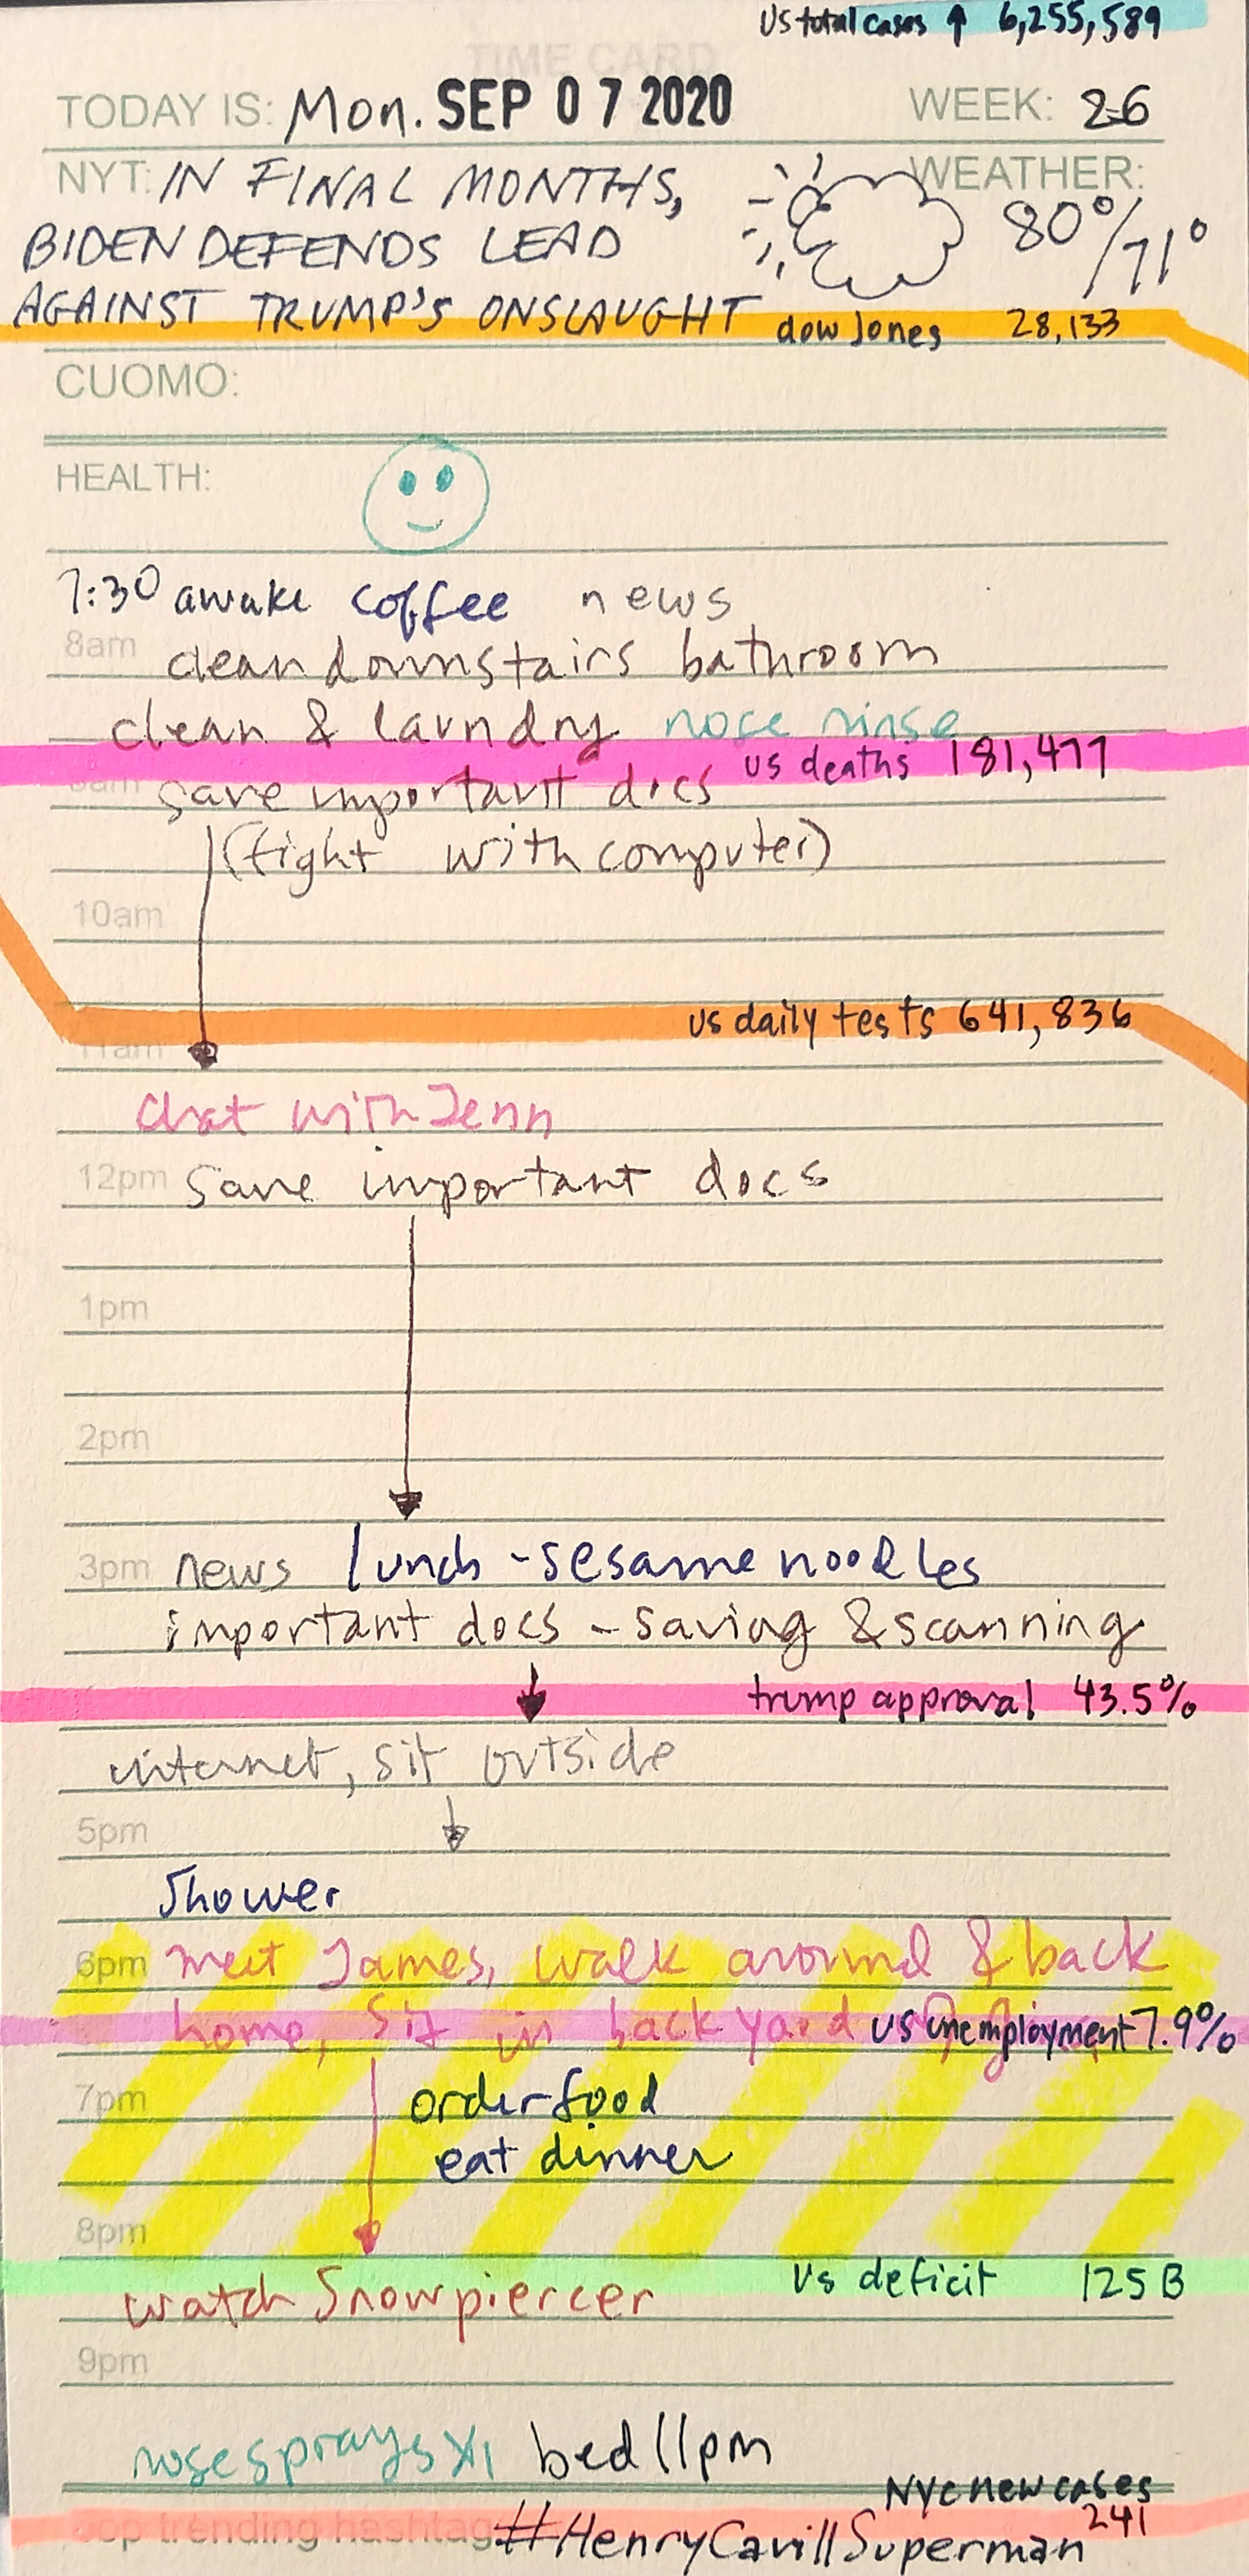 US total cases ↑ 6,255,589
TIME CARD
TODAY IS: Mon. SEP 07 2020 WEEK: 26
NYT: IN FINAL MONTHS, WEATHER:
BIDEN DEFENDS LEAD 80°/71°
AGAINST TRUMP'S ONSLAUGHT
dow Jones 28,133
CUOMO:
HEALTH:
7:30 awake coffee news
8am clean downstairs bathroom
clean & laundry nose rinse
us deaths 181,477
9am save important docs
(fight with computer)
10am
us daily tests 641,836
11am
chat with Jenn
12pm save important docs
1pm
2pm
3pm news lunch - sesame noodles
important docs - saving & scanning
trump approval 43.5%
internet, sit outside
5pm
Shower
6pm meet James, walk around & back
home, sit in back yard us unemployment 7.9%
7pm order food
eat dinner
8pm
us deficit 125 B
watch Snowpiercer
9pm
nose sprays x1 bed 11pm
NYC new cases
241
top trending hashtag #HenryCavillSuperman